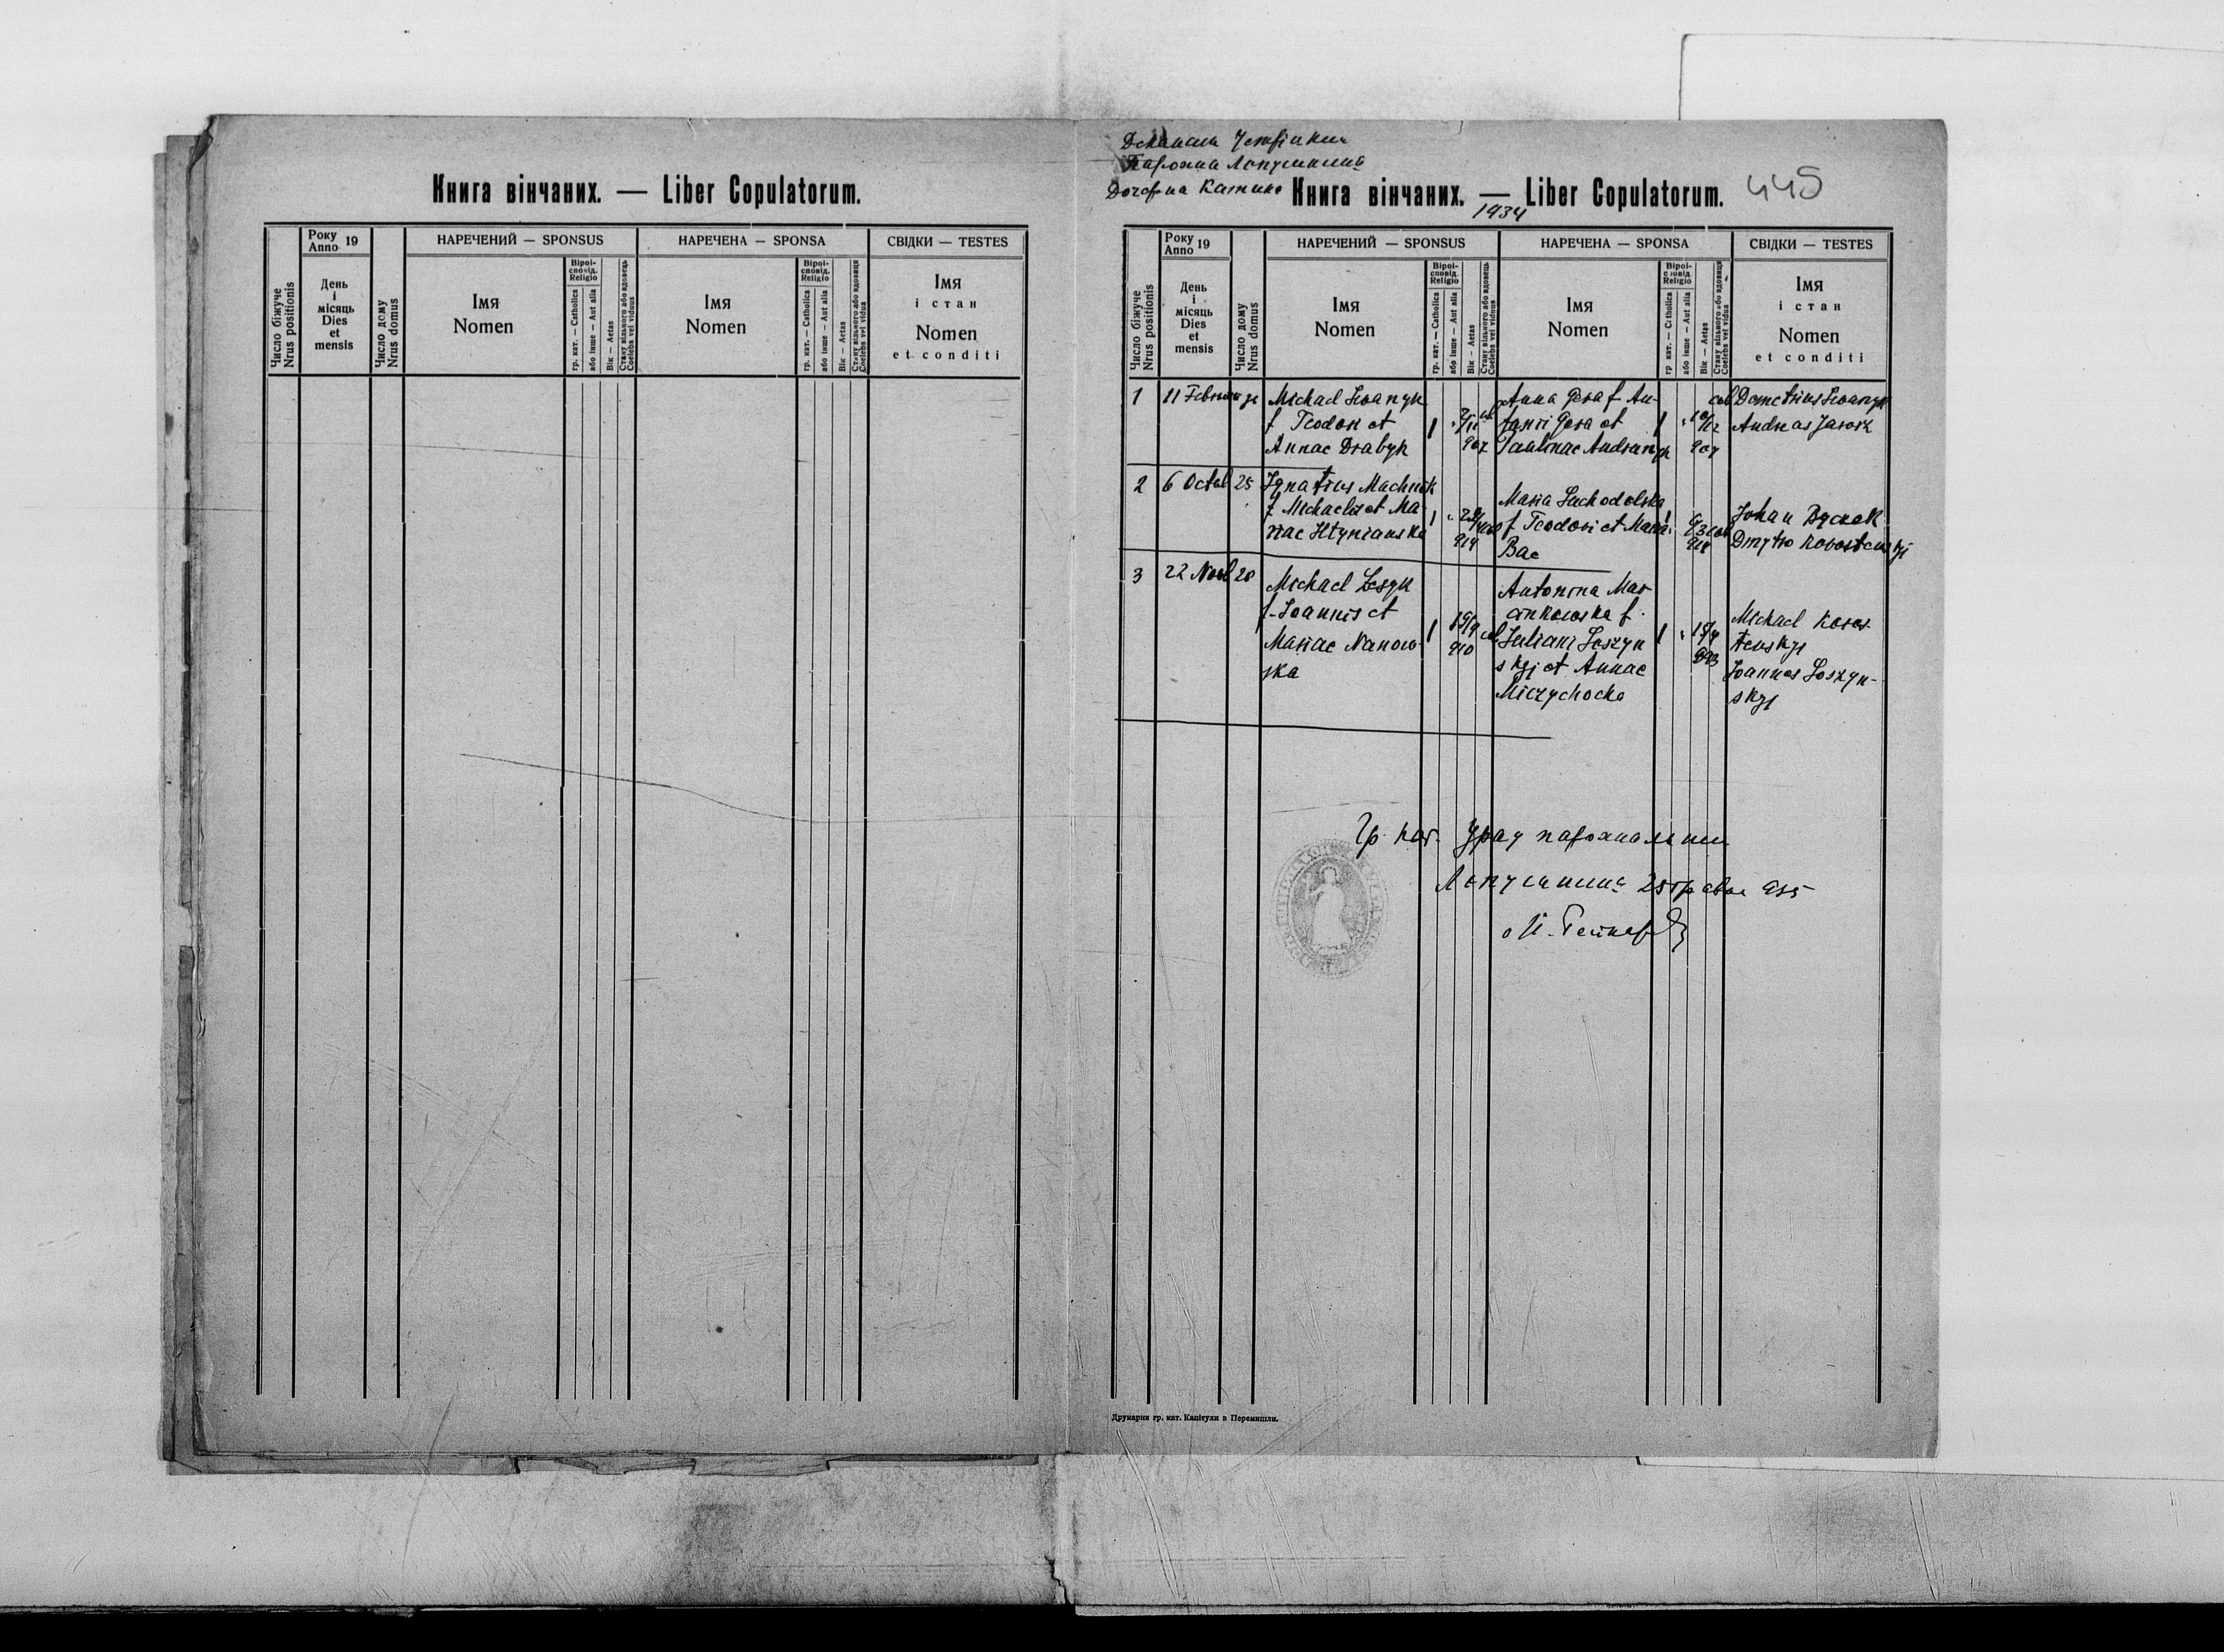 Книга вінчаних. — Liber Copulatorum.
Число біжуче
Nrus positionis
Року
Anno 19
День
і
місяць
Dies
et
mensis
Число дому
Nrus domus
НАРЕЧЕНИЙ — SPONSUS
Імя
Nomen
Віроі-
сповід.
Religio
гр. кат. — Catholica
або інше — Aut alia
Вік — Aetas
Стану вільного або вдовець
Coelebs vel viduus
НАРЕЧЕНА — SPONSA
Імя
Nomen
Віроі-
сповід.
Religio
гр. кат. — Catholica
або інше — Aut alia
Вік — Aetas
Стану вільного або вдовиця
Coelebs vel vidua
СВІДКИ — TESTES
Імя
і стан
Nomen
et conditi
Деканат Устрицкий
Парохия Лопушанка
Дочерна Катина
Книга вінчаних. — Liber Copulatorum.
445
1934
Число біжуче
Nrus positionis
Року
Anno 19
День
і
місяць
Dies
et
mensis
Число дому
Nrus domus
НАРЕЧЕНИЙ — SPONSUS
Імя
Nomen
Віроі-
сповід.
Religio
гр. кат. — Catholica
або інше — Aut alia
Вік — Aetas
Стану вільного або вдовець
Coelebs vel viduus
НАРЕЧЕНА — SPONSA
Імя
Nomen
Віроі-
сповід.
Religio
гр. кат. — Catholica
або інше — Aut alia
Вік — Aetas
Стану вільного або вдовиця
Coelebs vel vidua
СВІДКИ — TESTES
Імя
і стан
Nomen
et conditi
1 11 Februar
Michael Iwanyk
f Teodor et
Annae Drabyk
907
Anna Gera f An-
Gera et
Paulinae Andrunyk
907
cel
Demetrius Iwanyk
Andreas Jawork
2 6 Octob 25
Ignatius Muchnik
f Michaelis et Ma-
riae Htynianska
914
Maria Suchodolska
f Teodori et Maria
Bac
Johan Byczek
Dmytro Korostenskyj
3 22 Novb 20
Michael Lesyk
f. Joannis et
Mariae Nanow-
ska
19/9
910
cel
Antonina Mar-
cinkowska f.
Juliani Loszyn
skyj et Annae
Miczychocka
Michael Koros-
tenskyj
Joannes Loszyn-
skyj
Гр. кат. Уряд парохиальний
Лопушанка 25 травня 935
о И.
Друкарня гр. кат. Капітули в Перемишли.